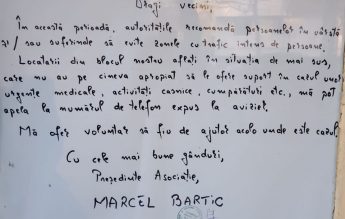 Dragi vecini,
În această perioadă, autoritățile recomandă persoanelor în vârstă
și/sau suferinde să evite zonele cu trafic intens de persoane.
Locatarii din blocul nostru aflați în situația de mai sus,
care nu au pe cineva apropiat să le ofere suport în cazul unor
urgențe medicale, activități casnice, cumpărături etc., mă pot
apela la numărul de telefon expus la avizier.
Mă ofer voluntar să fiu de ajutor acolo unde este cazul.
Cu cele mai bune gânduri,
Președinte Asociație,
MARCEL BARTIC